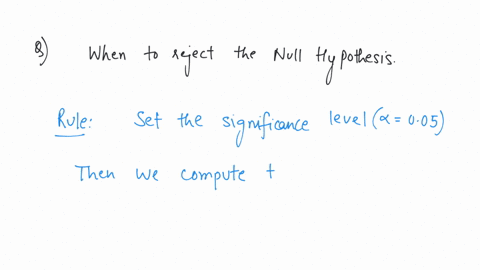 Q) When to reject the Null Hypothesis.
Rule: Set the significance level (α = 0.05)
Then we compute t